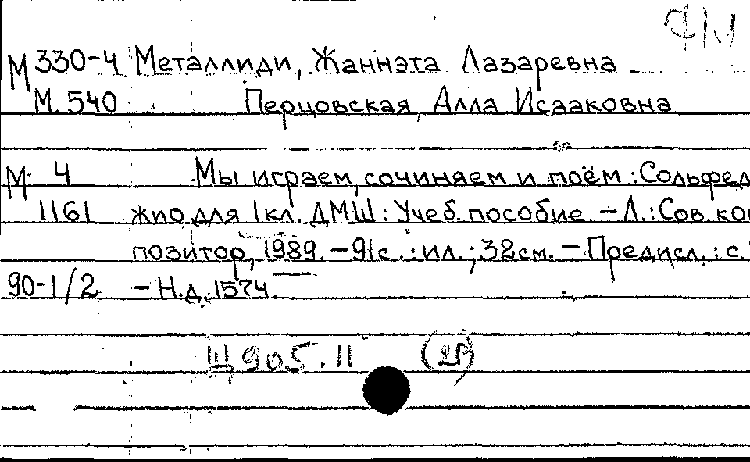 М 330-4 Металлиди, Жаннэта Лазаревна
М 540 Перцовская, Алла Исааковна
М 4 Мы играем, сочиняем и поём: Сольфед
1161 жио для 1кл. ДМШ: Учеб. пособие – Л.: Сов. ком
позитор, 1989. – 91с.: ил.; 32см. – Предисл.: с.
90-1/2 – Н.д. 1574.
Щ905.11